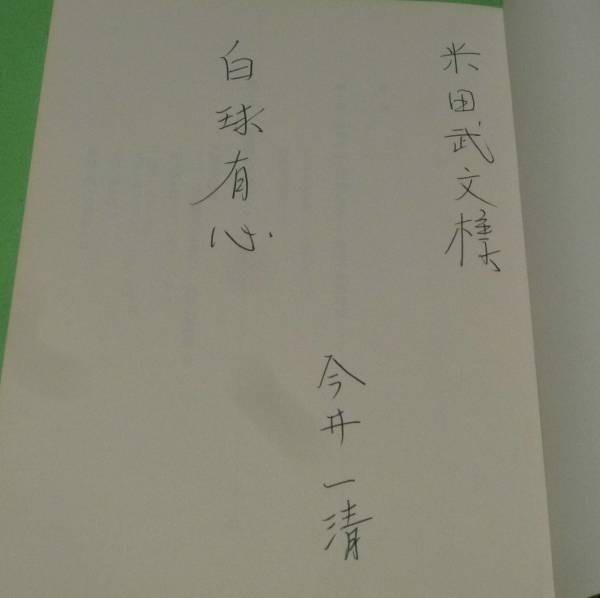 米田武文様
白球有心
今井一清